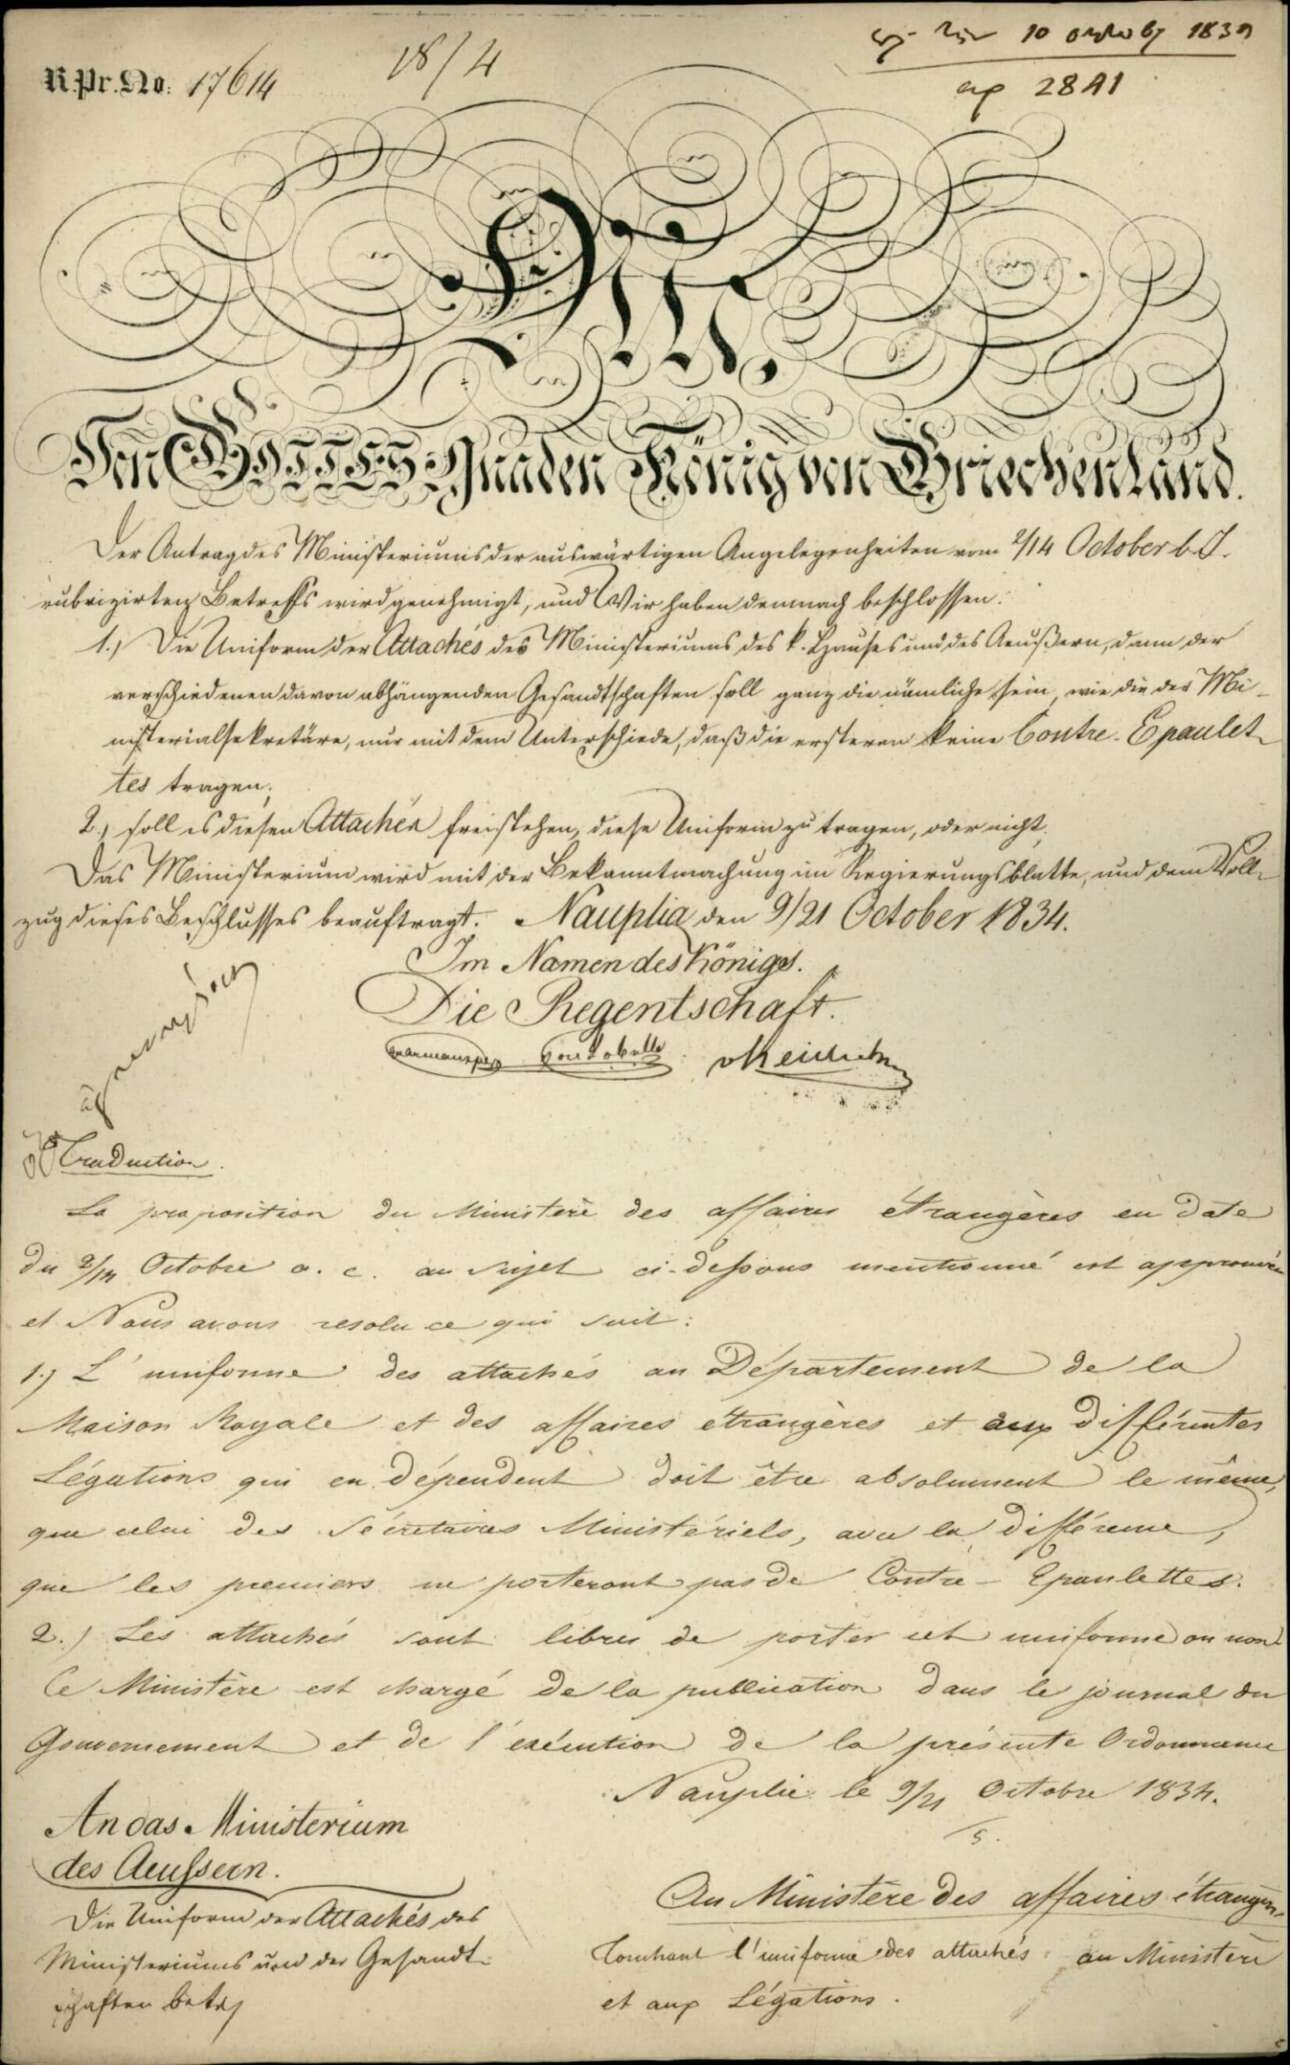 R. Pr. No. 17614
18/4
10 1834
28 A1
O. M.
Von GOTTES Gnaden König von Griechenland.
Der Antrag des Ministeriums der auswärtigen Angelegenheiten vom 2/14 October l. J.
rubrizirten Betreffs wird genehmigt, und Wir haben demnach beschlossen:
1.) Die Uniform der Attachés des Ministeriums des k. Hauses und des Aeußern, dann der
verschiedenen davon abhängenden Gesandtschaften soll ganz die nämliche sein, wie die der Mi-
nisterialsekretäre, nur mit dem Unterschiede, daß die ersteren keine Contre-Epaulet-
tes tragen;
2.) soll es diesen Attachés freistehen, diese Uniform zu tragen, oder nicht;
Das Ministerium wird mit der Bekanntmachung im Regierungsblatte, und dem Voll-
zug dieses Beschlusses beauftragt. Nauplia den 9/21 October 1834.
Im Namen des Königs.
Die Regentschaft.
vKobell
vHeideck
Traduction.
La proposition du Ministère des affaires étrangères en date
du 2/14 Octobre a. c. au sujet ci-dessous mentionné est approuvée
et Nous avons resolu ce qui suit:
1.) L'uniforme des attachés au Département de la
Maison Royale et des affaires étrangères et aux différentes
Légations qui en dépendent doit être absolument le même,
que celui des Sécretaires Ministériels, avec la différence,
que les premiers ne porteront pas de Contre-Epaulettes.
2.) Les attachés sont libres de porter cet uniforme ou non
Ce Ministère est chargé de la publication dans le journal du
Gouvernement et de l'exécution de la présente Ordonnance
Nauplie le 9/21 Octobre 1834.
An das Ministerium
des Aeussern.
Die Uniform der Attachés des
Ministeriums und der Gesandt-
schaften betr.
Au Ministère des affaires étrangères
Touchant l'uniforme des attachés au Ministère
et aux Légations.